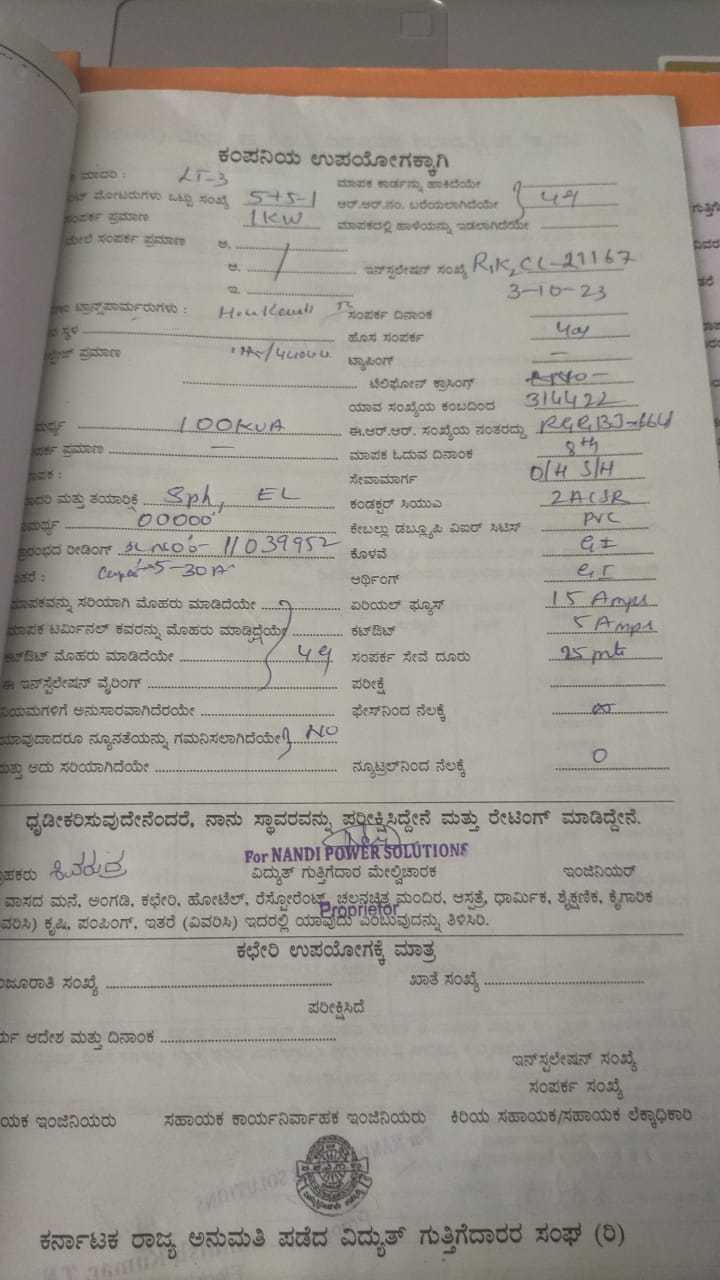 ಕಂಪನಿಯ ಉಪಯೋಗಕ್ಕಾಗಿ
ಮಾದರಿ : LT-3 ಮಾಪಕ ಕಾರ್ಡನ್ನು ಹಾಕಿದೆಯೇ
ಮೋಟರುಗಳು ಒಟ್ಟು ಸಂಖ್ಯೆ 5+5-1 ಆರ್.ಆರ್.ನಂ. ಬರೆಯಲಾಗಿದೆಯೇ
ಸಂಪರ್ಕ ಪ್ರಮಾಣ 1KW ಮಾಪಕದಲ್ಲಿ ಹಾಳೆಯನ್ನು ಇಡಲಾಗಿದೆಯೇ
ಮೇಲೆ ಸಂಪರ್ಕ ಪ್ರಮಾಣ ಅ.
ಆ. ಇನ್‌ಸ್ಪಲೇಷನ್ ಸಂಖ್ಯೆ R,K,CL-21167
ಇ 3-10-23
ಟ್ರಾನ್ಸ್‌ಫಾರ್ಮರುಗಳು : ಸಂಪರ್ಕ ದಿನಾಂಕ
ಸ್ಥಳ ಹೊಸ ಸಂಪರ್ಕ
ಪ್ರಮಾಣ ಟ್ಯಾಪಿಂಗ್ –
ಟೆಲಿಫೋನ್ ಕ್ರಾಸಿಂಗ್
ಯಾವ ಸಂಖ್ಯೆಯ ಕಂಬದಿಂದ 314422
100KVA ಈ.ಆರ್.ಆರ್. ಸಂಖ್ಯೆಯ ನಂತರದ್ದು
ಪ್ರಮಾಣ – ಮಾಪಕ ಓದುವ ದಿನಾಂಕ 8th
ಸೇವಾಮಾರ್ಗ O/H S/H
ಮತ್ತು ತಯಾರಿಕೆ Sph, EL ಕಂಡಕ್ಟರ್ ಸಿಯುಎ 2ACSR
00000 ಕೇಬಲ್ಲು ಡಬ್ಲ್ಯೂಪಿ ವಿಐರ್ ಸಿಟಿಸ್ PVC
ರೀಡಿಂಗ್ 11039952 ಕೊಳವೆ GI
5-30A ಆರ್ಥಿಂಗ್ GI
ಮಾಪಕವನ್ನು ಸರಿಯಾಗಿ ಮೊಹರು ಮಾಡಿದೆಯೇ ಏರಿಯಲ್ ಫ್ಯೂಸ್ 15 Amps
ಮಾಪಕ ಟರ್ಮಿನಲ್ ಕವರನ್ನು ಮೊಹರು ಮಾಡ್ದಿದೆಯೇ ಕಟ್‌ಔಟ್ 5 Amps
ಕಟ್‌ಔಟ್ ಮೊಹರು ಮಾಡಿದೆಯೇ ಸಂಪರ್ಕ ಸೇವೆ ದೂರು 25 mts
ಈ ಇನ್‌ಸ್ಪೆಲೇಷನ್ ವೈರಿಂಗ್ ಪರೀಕ್ಷೆ
ನಿಯಮಗಳಿಗೆ ಅನುಸಾರವಾಗಿದೆರಯೇ ಫೇಸ್‌ನಿಂದ ನೆಲಕ್ಕೆ
ಯಾವುದಾದರೂ ನ್ಯೂನತೆಯನ್ನು ಗಮನಿಸಲಾಗಿದೆಯೇ NO
ಮತ್ತು ಅದು ಸರಿಯಾಗಿದೆಯೇ ನ್ಯೂಟ್ರಲ್‌ನಿಂದ ನೆಲಕ್ಕೆ 0
ಧೃಡೀಕರಿಸುವುದೇನೆಂದರೆ, ನಾನು ಸ್ಥಾವರವನ್ನು ಪರೀಕ್ಷಿಸಿದ್ದೇನೆ ಮತ್ತು ರೇಟಿಂಗ್ ಮಾಡಿದ್ದೇನೆ.
For NANDI POWER SOLUTIONS
ಶಿವರುದ್ರ ವಿದ್ಯುತ್ ಗುತ್ತಿಗೆದಾರ ಮೇಲ್ವಿಚಾರಕ ಇಂಜಿನಿಯರ್
ವಾಸದ ಮನೆ, ಅಂಗಡಿ, ಕಛೇರಿ, ಹೋಟೆಲ್, ರೆಸ್ಟೋರೆಂಟ್, ಚಲನಚಿತ್ರ ಮಂದಿರ, ಆಸ್ಪತ್ರೆ, ಧಾರ್ಮಿಕ, ಶೈಕ್ಷಣಿಕ, ಕೈಗಾರಿಕ
Proprietor
ಕೃಷಿ, ಪಂಪಿಂಗ್, ಇತರೆ (ವಿವರಿಸಿ) ಇದರಲ್ಲಿ ಯಾವುದು ಎಂಬುವುದನ್ನು ತಿಳಿಸಿರಿ.
ಕಛೇರಿ ಉಪಯೋಗಕ್ಕೆ ಮಾತ್ರ
ಸಂಖ್ಯೆ ಖಾತೆ ಸಂಖ್ಯೆ
ಪರೀಕ್ಷಿಸಿದೆ
ಆದೇಶ ಮತ್ತು ದಿನಾಂಕ
ಇನ್‌ಸ್ಪಲೇಷನ್ ಸಂಖ್ಯೆ
ಸಂಪರ್ಕ ಸಂಖ್ಯೆ
ಇಂಜಿನಿಯರು ಸಹಾಯಕ ಕಾರ್ಯನಿರ್ವಾಹಕ ಇಂಜಿನಿಯರು ಕಿರಿಯ ಸಹಾಯಕ/ಸಹಾಯಕ ಲೆಕ್ಕಾಧಿಕಾರಿ
ಕರ್ನಾಟಕ ರಾಜ್ಯ ಅನುಮತಿ ಪಡೆದ ವಿದ್ಯುತ್ ಗುತ್ತಿಗೆದಾರರ ಸಂಘ (ರಿ)